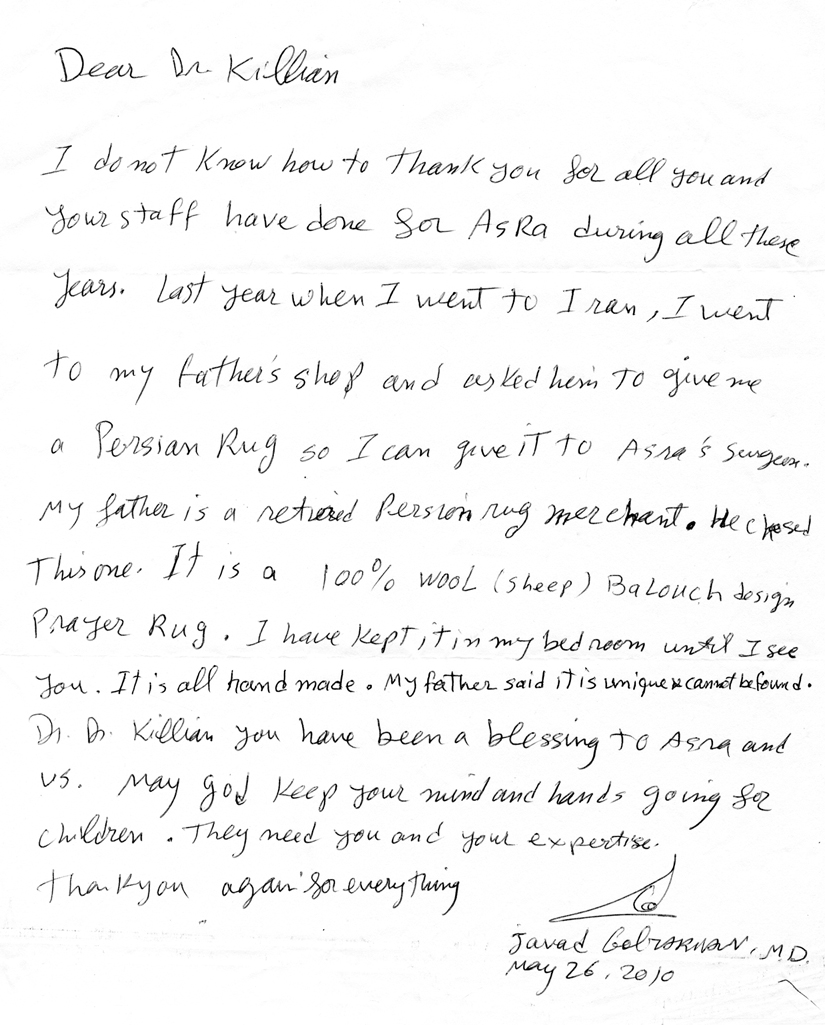 Dear Dr. Killian
I do not know how to thank you for all you and
your staff have done for AsRa during all these
years. Last year when I went to Iran, I went
to my father's shop and asked him to give me
a Persian Rug so I can give it to Asra's surgeon.
My father is a retired Persian rug merchant. He chosed
This one. It is a 100% wool (sheep) Balouch design
Prayer Rug. I have kept it in my bedroom until I see
you. It is all hand made. My father said it is unique & cannot be found.
Dr. Dr. Killian you have been a blessing to Asra and
us. May god keep your mind and hands going for
children. They need you and your expertise.
Thank you again for everything
Javad M.D.
May 26, 2010